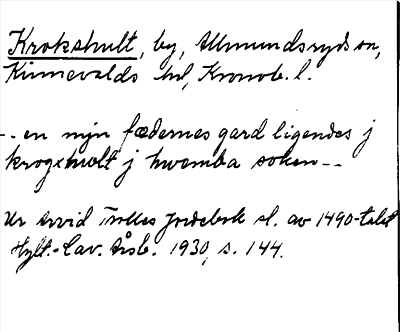 Krokshult, by, Almundsryds sn,
Kinnevalds hd, Kronob. l.
-- en myn fædernes gard ligendes j
krogshwlt j hwemba soken --
Ur Arvid Trolles Jordebok sl. av 1490-talet
Hylt.-Cav. Årsb. 1930, s. 144.